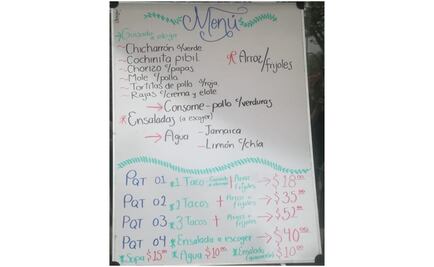 Menú
Guisado a elegir
~ Chicharrón c/verde
~ Cochinita pibil
~ Chorizo c/papas
~ Mole c/pollo
~ Tortitas de pollo c/roja
~ Rajas c/crema y elote
Arroz/frijoles
→ Consome - pollo c/verduras
Ensaladas (a escoger)
→ Agua - Jamaica
- Limón c/chía
Pqt 01 1 Taco + Arroz frijoles → $18.00
Pqt 02 2 Tacos + Arroz frijoles → $35.00
Pqt 03 3 Tacos + Arroz frijoles → $52.00
Pqt 04 Ensalada a escoger → $40.00
Sopa $15.00 Agua $10.00 Ensalada $10.00